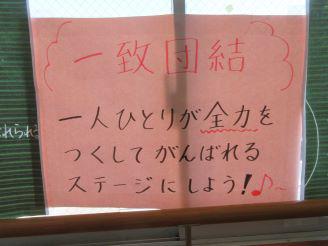 一致団結
一人ひとりが全力を
つくしてがんばれる
ステージにしよう!♪~
れられる